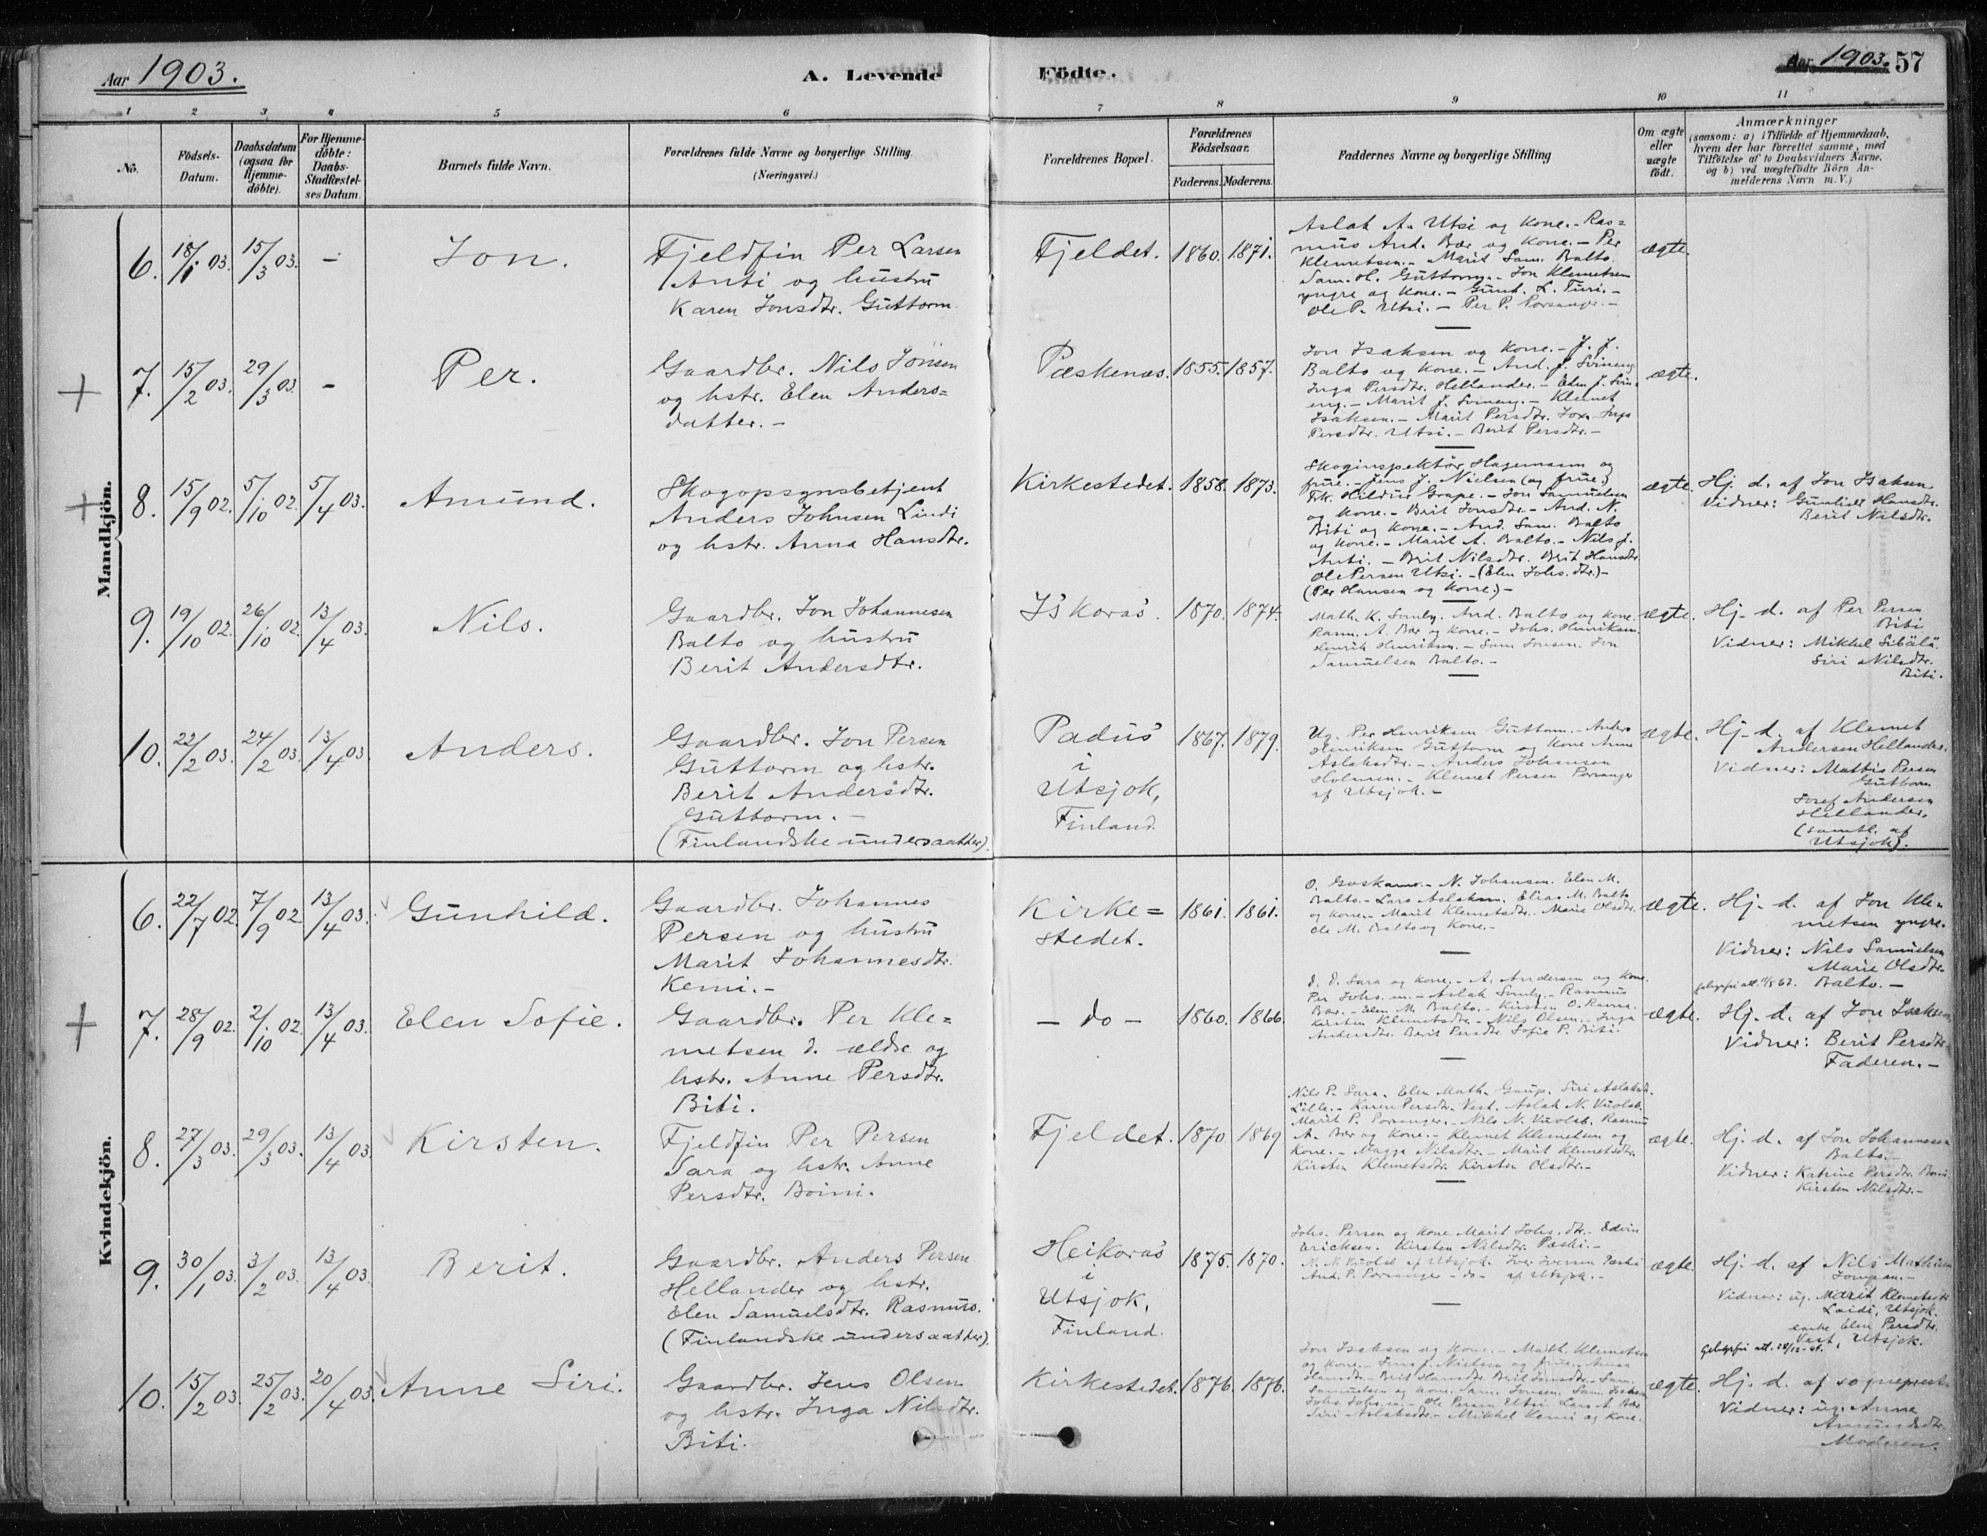 Aar 1903.
A. Levende Födte.
Aar 1903. 57
1 2 3 4 5 6 7 8 9 10 11
No.
Födsels-
Datum.
Daabsdatum
(ogsaa for
Hjemme-
döbte).
For Hjemme-
döbte:
Daabs-
Stadfæstel-
ses Datum.
Barnets fulde Navn.
Forældrenes fulde Navne og borgerlige Stilling.
(Næringsvei.)
Forældrenes Bopæl.
Forældrenes
Födselsaar.
Faderens. Moderens.
Faddernes Navne og borgerlige Stilling
Om ægte
eller
uægte
födt.
Anmærkninger
(saasom: a) i Tilfælde af Hjemmedaab,
hvem der har forrettet samme, med
Tilföielse af to Daabsvidners Navne,
og b) ved uægtefödte Börn An-
melderens Navn m. V.)
Mandkjön.
6. 18/1 03. 15/3 03. - Jon.
Fjeldfin Per Larsen
Anti og hustru
Karen Jonsdtr. Guttorm.
Fjeldet. 1860. 1871.
Aslak A. Utsi og Kone. - Ras=
mus And. Bær og Kone. - Per
Klemetsen. - Marit Sam. Balto.
Sam. H. Guttorm. - Jon Klemetsen
yngre og Kone. - Gunh. L. Turi. -
Ole P. Utsi. - Per P. Porsanger. -
ægte.
7. 15/2 03. 29/3 03. - Per.
Gaardbr. Nils Jonsen
og hstr. Elen Anders=
datter. -
Pæskenæs. 1855. 1857.
Jon Isaksen og Kone. - J. J.
Balto og Kone. - And. J. Svineng
Inga Persdtr. Hellander. - Elen J. Svin=
eng. - Marit J. Svineng. - Klemet
Isaksen. - Marit Persdtr. - Inga
Persdtr. Utsi. - Berit Persdtr. -
ægte.
8. 15/9 02. 5/10 02. 5/4 03. Amund.
Skogopsynsbetjent
Anders Johnsen Lindi
og hstr. Anna Hansdtr.
Kirkestedet. 1858. 1873.
Skoginspektör Hagemann og
frue. - Jens J. Nielsen (og frue.)
Frk. Hildur Grape. - Jon Samuelsen
og Kone. - Brit Jonsdtr. - And. N.
Biti og Kone. - And. Sam. Balto
og Kone. - Marit A. Balto. - Nils J.
Anti. - Brit Nilsdtr. Brit Hansdtr
Ole Persen Utsi. - (Elen Johs. dtr.) -
(Per Hansen og Kone.) -
ægte.
Hj. d. af Jon Isaksen
Vidner: Hansdtr.
Berit Nilsdtr.
9. 19/10 02. 26/10 02. 13/4 03. Nils.
Gaardbr. Jon Johannesen
Balto og hustru
Berit Andersdtr.
Is'koras'. 1870. 1874.
Math. K. Somby. And. Balto og Kone.
Rasm. A. Bær og Kone. - Johs. Henriksen.
Henrik Henriksen. - Sam Jonsen. Jon
Samuelsen Balto. -
ægte.
Hj. d. af Per Persen
Biti
Vidner: Mikkel
Siri Nilsdtr.
Biti.
10. 22/2 03. 24/2 03. 13/4 03. Anders.
Gaardbr. Jon Persen
Guttorm og hstr.
Berit Andersdtr.
Guttorm. -
(Finlandske undersaatter).
Padus'
i
Utsjok,
Finland.
1867. 1879.
Ug. Per Henriksen Guttorm. - Anders
Henriksen Guttorm og Kone Anne
Aslaksdtr. - Anders Johansen
Holmen. - Klemet Persen Porsanger
af Utsjok. -
ægte.
Hj. d. af Klemet
Andersen Hellander.
Vidner: Mathis Persen
Guttorm
Josef Andersen
Hellander,
(samtl. af
Utsjok).
Kvindekjön.
6. 22/7 02. 7/9 02. 13/4 03. Gunhild.
Gaardbr. Johannes
Persen og hustru
Marit Johannesdtr.
Kemi. -
Kirke=
stedet.
1861. 1861.
N. Johansen. Elen M.
Balto. - Lars Aslaksen. Elias M. Balto
og Kone. - Marit Klemetsdtr. - Marie Olsdtr.
Ole M. Balto og Kone. -
ægte.
Hj. d. af Jon Kle-
metsen yngre.
Vidner: Nils Samuelsen
Marie Olsdtr.
Balto. -
7. 28/9 02. 2/10 02. 13/4 03. Elen Sofie.
Gaardbr. Per Kle=
metsen d. ældre og
hstr. Anne Persdtr.
Biti.
- do - 1860. 1866.
Sara og Kone. - A. Andersen og Kone.
Per Johs. en. - Aslak Somby. - Rasmus
Bær. - Elen M. Balto. - Kirsten O. Ravna
Kirsten Klemetsdtr. - Nils Olsen. - Inga
Andersdtr. Berit Persdtr Sofie P. Biti.
ægte.
Hj. d. af Jon Isaksen
Vidner: Berit Persdtr.
Faderen. -
8. 27/3 03. 29/3 03. 13/4 03. Kirsten.
Fjeldfin Per Persen
Sara og hstr. Anne
Persdtr. Boini.
Fjeldet. 1870. 1869
Nils P. Sara. Elen Math. Gaup. Siri Aslaksd.
Lille. - Karen Persdtr. Vest. Aslak N. Vuolab.
Marit P. Porsanger. - Nils N. Vuolab. Rasmus
A. Bær og Kone. - Klemet Klemetsen og
Kone. - Magga Nilsdtr. - Marit Klemetsdtr.
Kirsten Klemetsdtr. Kirsten Olsdtr. -
ægte.
Hj. d. af Jon Johannessen
Balto. -
Vidner: Katrine Persdtr. Boini.
Kirsten Nilsdtr. -
9. 30/1 03. 3/2 03. 13/4 03. Berit.
Gaardbr. Anders Persen
Hellander og hstr.
Elen Samuelsdtr. Rasmus.
(Finlandske undersaatter).
Heikoras'
i
Utsjok,
Finland.
1875. 1870.
Johs. Persen og Kone Marit Johs. dtr. Edvin
Ericksen. Kirsten Nilsdtr. Pæski. -
N. N. Vuolab af Utsjok. Iver Iversen
And. P. Porsanger - do - af Utsjok. -
ægte.
Hj. d. af Nils Mathisen
Vidner: ug. Marit Klemetsdtr
Laidi, Utsjok.
enke Elen Persdtr.
Vest, Utsjok.
10. 15/2 03. 25/2 03. 20/4 03. Anne Siri.
Gaardbr. Jens Olsen
og hstr. Inga Nilsdtr.
Biti.
Kirkestedet. 1876. 1876.
Jon Isaksen og Kone. - Math. Klemetsen
og Kone. - Jens J. Nielsen og frue. - Anna
Hansdtr. - Brit Hansdtr. Brit Jonsdtr. - Sam.
Samuelsen og Kone. Sam. Jonsen.
Ole Persen Utsi. Lars A. Bær
Siri Aslaksdtr. - Mikkel Kemi og Kone.
ægte.
Hj. d. af sogneprest
Vidner: ug. Anne
Amundsdtr.
Moderen.